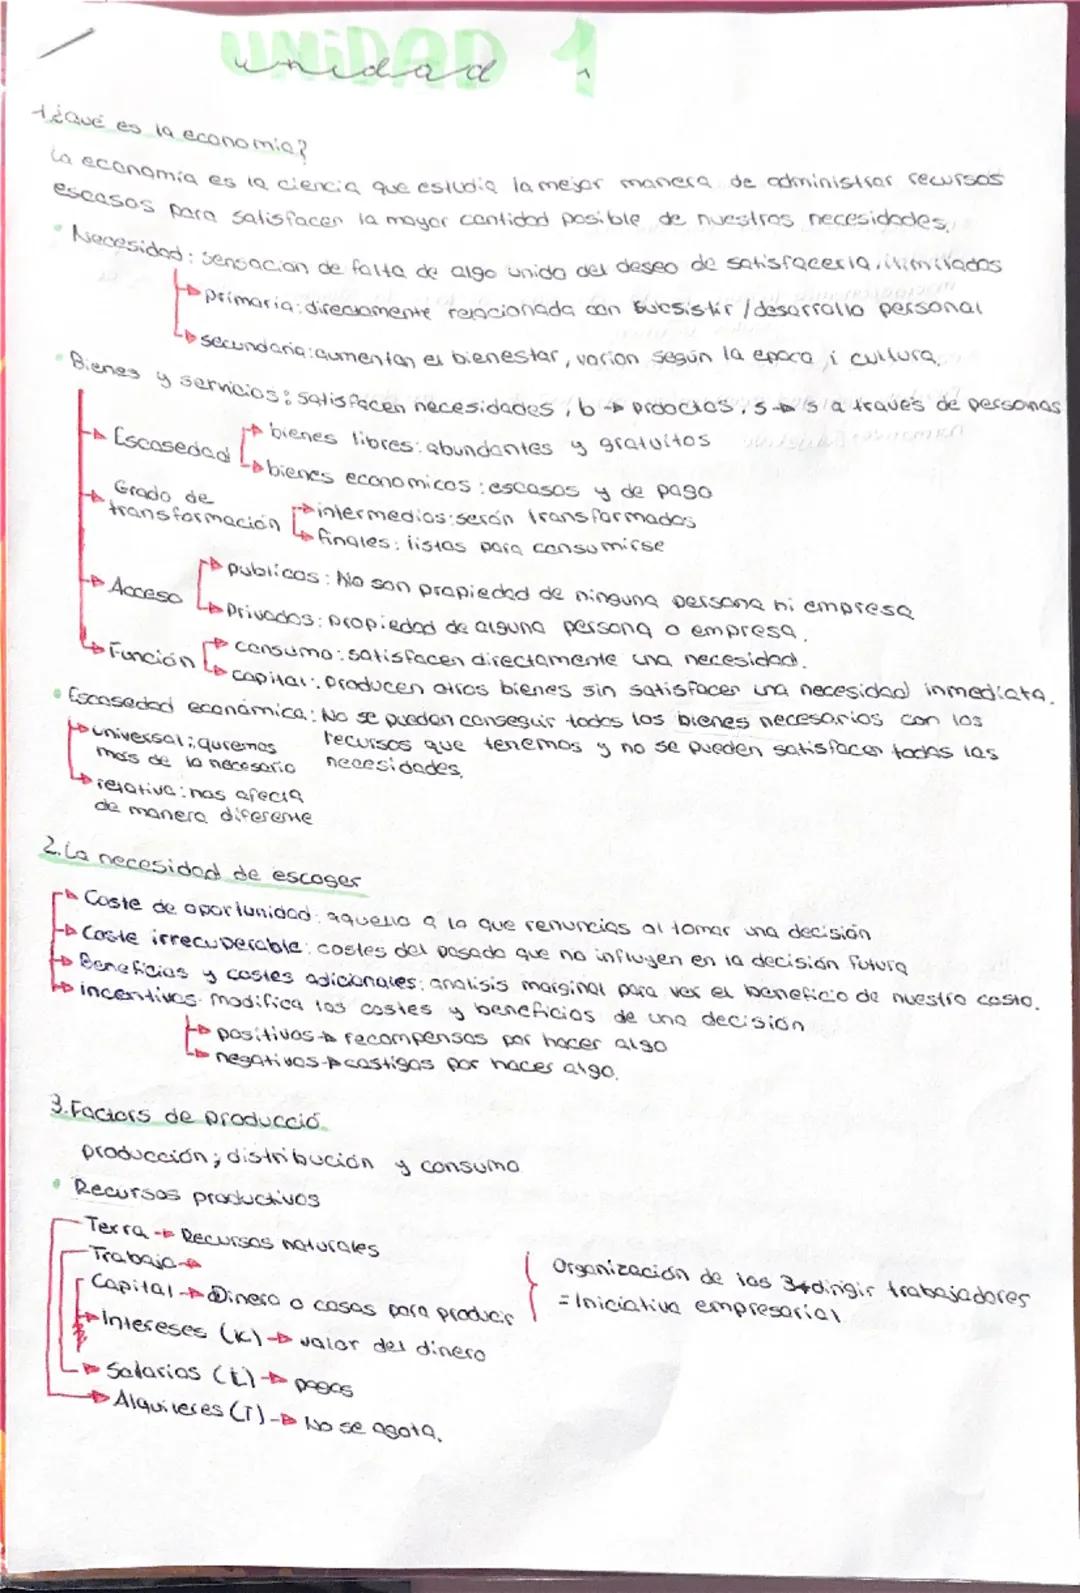 UNIDAD 1
unidad
1¿Qué es la economia?
La economía es la ciencia que estudia la mejor manera de administrar recursos
escasos para satisfacer la mayor cantidad posible de nuestras necesidades.
Necesidad: sensacion de falta de algo unida del deseo de satisfacerla, ilimitadas
primaria: directamente relacionada con subsistir / desarrollo personal
secundaria: aumentan el bienestar, varian según la epoca i cultura.
Bienes y servicios: satisfacen necesidades, b → prodoctos, s → s a través de personas
Escasedad
bienes libres: abundantes y gratuitos
bienes economicos: escasos y de pago
Grado de
transformación
intermedios: serán transformados
finales: listos para consumirse
Acceso
publicos: No son propiedad de ninguna persona ni empresa
Privados: propiedad de alguna persona o empresa.
Función
consumo: satisfacen directamente una necesidad.
capital: Producen otros bienes sin satisfacer una necesidad inmediata.
Escasedad económica: No se pueden conseguir todos los bienes necesarios con los
recursos que tenemos y no se pueden satisfacer todas las
necesidades.
universal: quremos
más de lo necesario
relativa: nos afecta
de manera diferente
2. La necesidad de escoger
Coste de oportunidad: aquello a lo que renuncias al tomar una decisión
Coste irrecuperable: costes del pasado que no influyen en la decisión futura
Beneficios y costes adicionales: analisis marginal para ver el beneficio de nuestro costo.
incentivos: modifica los costes y beneficios de una decisión
positivos → recompensas por hacer algo
negativos → castigos por hacer algo.
3. Factors de producció
producción; distribución y consumo
Recursos productivos
Terra → Recursos naturales
Trabajo →
Capital → Dinero o cosas para producir
Organización de los 3 + dirigir trabajadores
= Iniciativa empresarial
Intereses (K) → valor del dinero
Salarios (L) → pagas
Alquileres (T) → No se agota.